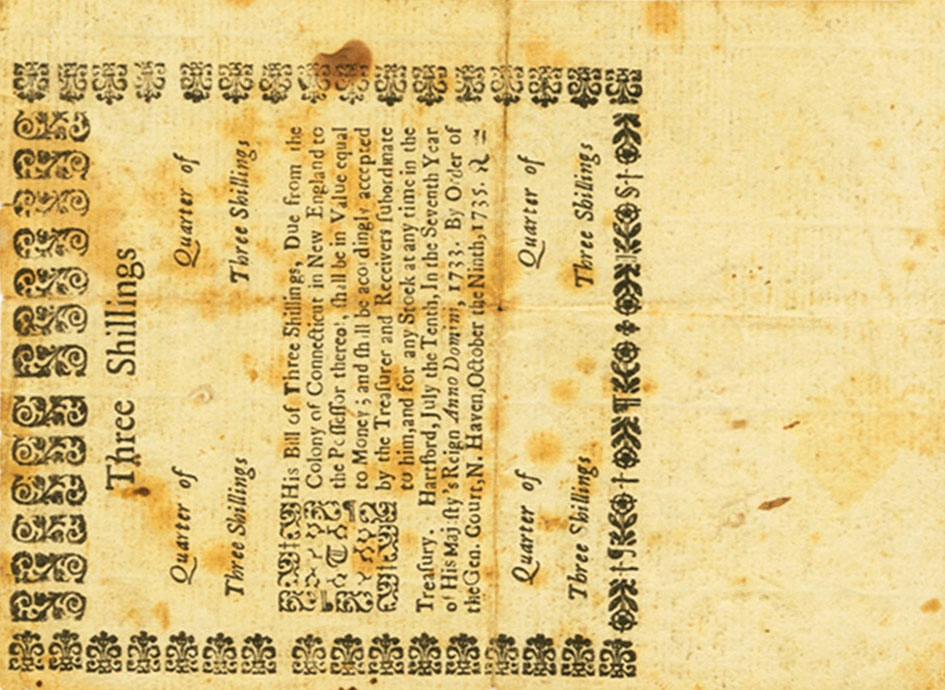 Three Shillings
Quarter of Quarter of
Three Shillings Three Shillings
THis Bill of Three Shillings, Due from the
Colony of Connecticut in New England to
the Poſſeſſor thereof, ſhall be in Value equal
to Money; and ſhall be accordingly accepted
by the Treaſurer and Receivers ſubordinate
to him, and for any Stock at any time in the
Treaſury. Hartford, July the Tenth, In the Seventh Year
of His Majeſty's Reign Anno Domini, 1733. By Order of
the Gen. Court, N. Haven, October the Ninth, 1735.
Quarter of Quarter of
Three Shillings Three Shillings